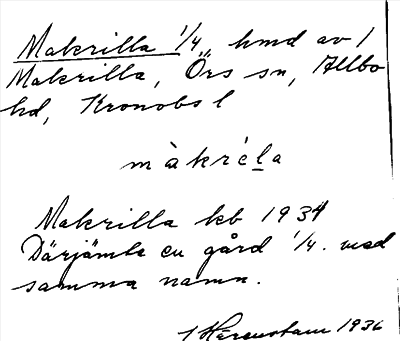 Makrilla 1/4, hmd av 1
Makrilla, Örs sn, Allbo
hd, Kronobs l
màkréla
Makrilla kb 1934
Därjämte en gård 1/4. med
samma namn.
1936